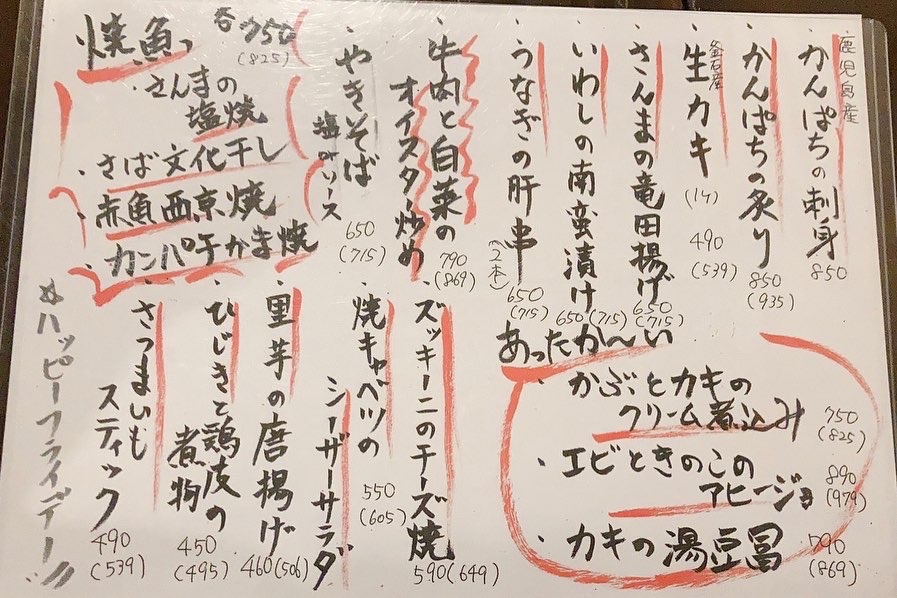 鹿児島産
・かんぱちの刺身
850
・かんぱちの炙り
850
(935)
釜石産
・生カキ
(1ヶ)
490
(539)
・さんまの竜田揚げ
650
(715)
・いわしの南蛮漬け
650(715)
・うなぎの肝串
(2本)
650
(715)
・牛肉と白菜の
オイスター炒め
790
(869)
・やきそば
塩orソース
650
(715)
焼魚っ
各750
(825)
・さんまの
塩焼
・さば文化干し
・赤魚西京焼
・カンパチかま焼
あったか〜い
・かぶとカキの
クリーム煮込み
750
(825)
・エビときのこの
アヒージョ
890
(979)
・カキの湯豆冨
790
(869)
・ズッキーニのチーズ焼
590(649)
・焼キャベツの
シーザーサラダ
550
(605)
・里芋の唐揚げ
460(506)
・ひじきと鶏皮の
煮物
450
(495)
・さつまいも
スティック
490
(539)
ハッピーフライデー